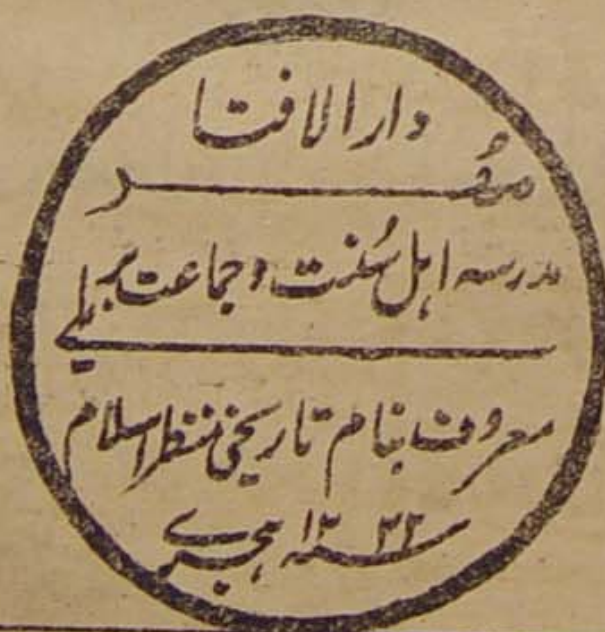 دارالافتا
مہر
مدرسہ اہل سُنت و جماعت بریلی
معروف بنام تاریخی منظر اسلام
۱۳۲۲ ہجری